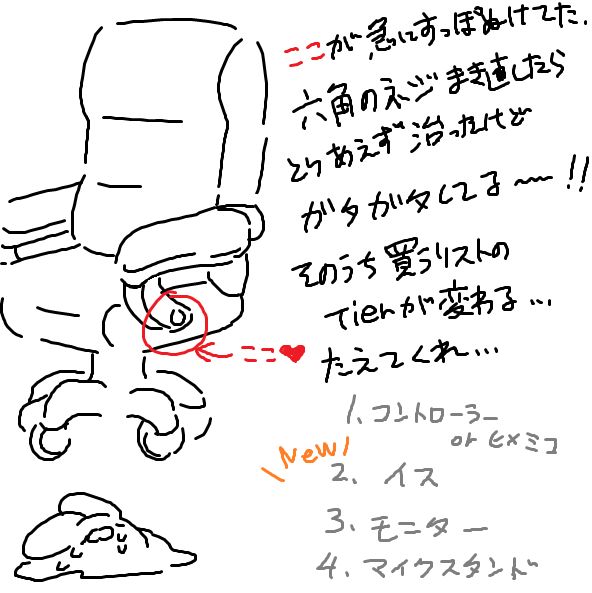 ここが急にすっぽぬけてた.
六角のネジまき直したら
とりあえず治ったけど
ガタガタしてる〜〜!!
そのうち買うリストの
Tierが変わる...
たえてくれ...
ここ♥
1.コントローラー
or EXミコ
New!
2.イス
3.モニター
4.マイクスタンド